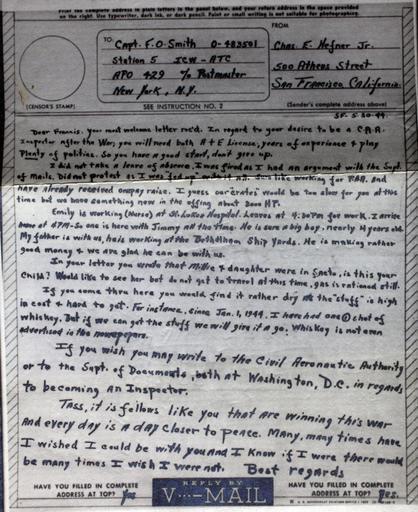 Print the complete address in plain letters in the panel below, and your return address in the space provided
on the right. Use typewriter, dark ink, or dark pencil. Faint or small writing is not suitable for photographing.
TO
FROM
Capt. F.O. Smith O-483501
Station 5 ICW-ATC
APO 429 c/o Postmaster
New York, N.Y.
Chas. E. Hefner Jr.
500 Athens Street
San Francisco California.
(CENSOR'S STAMP)
SEE INSTRUCTION NO. 2
(Sender's complete address above)
SF. 5-30-44
Dear Francis: your most welcome letter rec'd. In regard to your desire to be a C.A.A.
Inspector after the War, you will need both A & E License, years of experience & play
Plenty of politics. So you have a good start, don't give up.
I did not take a leave of absence, I was fired as I had an argument with the Supt.
of Mails. Did not protest as I was fed up with it all. I like working for
have already received one pay raise. I guess our crates would be too slow for you at this
time but we have something new in the offing about 2000 HP.
Emily is working (Nurse) at St. Lukes Hospital. Leaves at 4:30PM for work. I arrive
home at 4PM - So one is here with Jimmy all the time. He is sure a big boy, nearly 4 years old.
My father is with us, he is working at the Bethlehem Ship Yards. He is making rather
good money & we are glad he can be with us.
In your letter you wrote that Millie & daughter were in Sacto, is this your
child? Would like to see her but do not get to travel at this time, gas is rationed still.
If you come thru here you would find it rather dry as the "stuff" is high
in cost & hard to get. For instance, since Jan. 1, 1944, I have had one ① shot of
whiskey. But if we can get the stuff we will give it a go. Whiskey is not even
advertised in the newspapers.
If you wish you may write to the Civil Aeronautic Authority
or to the Supt. of Documents, both at Washington, D.C. in regards
to becoming an Inspector.
Tass, it is fellows like you that are winning this war
and every day is a day closer to peace. Many, many times have
I wished I could be with you and I know if I were there would
be many times I wish I were not. Best regards
HAVE YOU FILLED IN COMPLETE
ADDRESS AT TOP? Yes
REPLY BY
V···—MAIL
HAVE YOU FILLED IN COMPLETE
ADDRESS AT TOP? Yes.